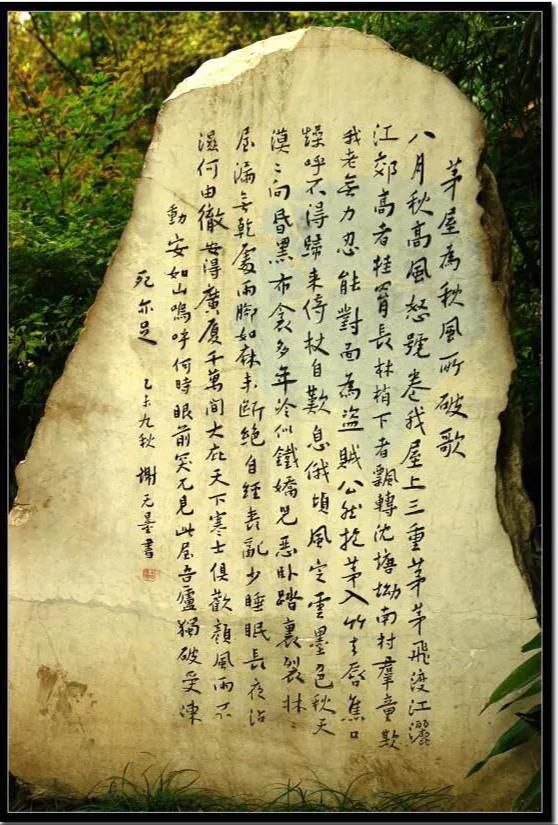 茅屋為秋風所破歌
八月秋高風怒號卷我屋上三重茅茅飛渡江灑
江郊高者挂罥長林梢下者飄轉沈塘坳南村羣童欺
我老無力忍能對面為盜賊公然抱茅入竹去唇焦口
燥呼不得歸来倚杖自歎息俄頃風定雲墨色秋天
漠〻向昏黑布衾多年冷似鐵嬌兒惡卧踏裏裂牀〻
屋漏無乾處雨脚如麻未斷絕自經喪亂少睡眠長夜沾
濕何由徹安得廣厦千萬間大庇天下寒士俱歡顏風雨不
動安如山嗚呼何時眼前突兀見此屋吾廬獨破受凍
死亦足 乙未九秋 謝无量書